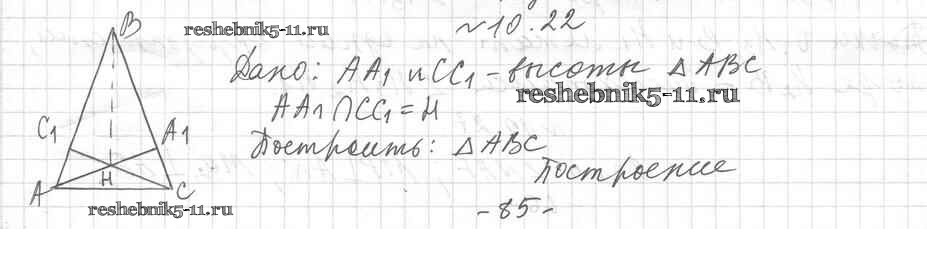 B
reshebnik5-11.ru
№10.22
Дано: AA1 и CC1 - высоты △ABC
reshebnik5-11.ru
AA1∩CC1=H
C1
A1
Построить: △ABC
H
Построение
A
C
reshebnik5-11.ru
-85-